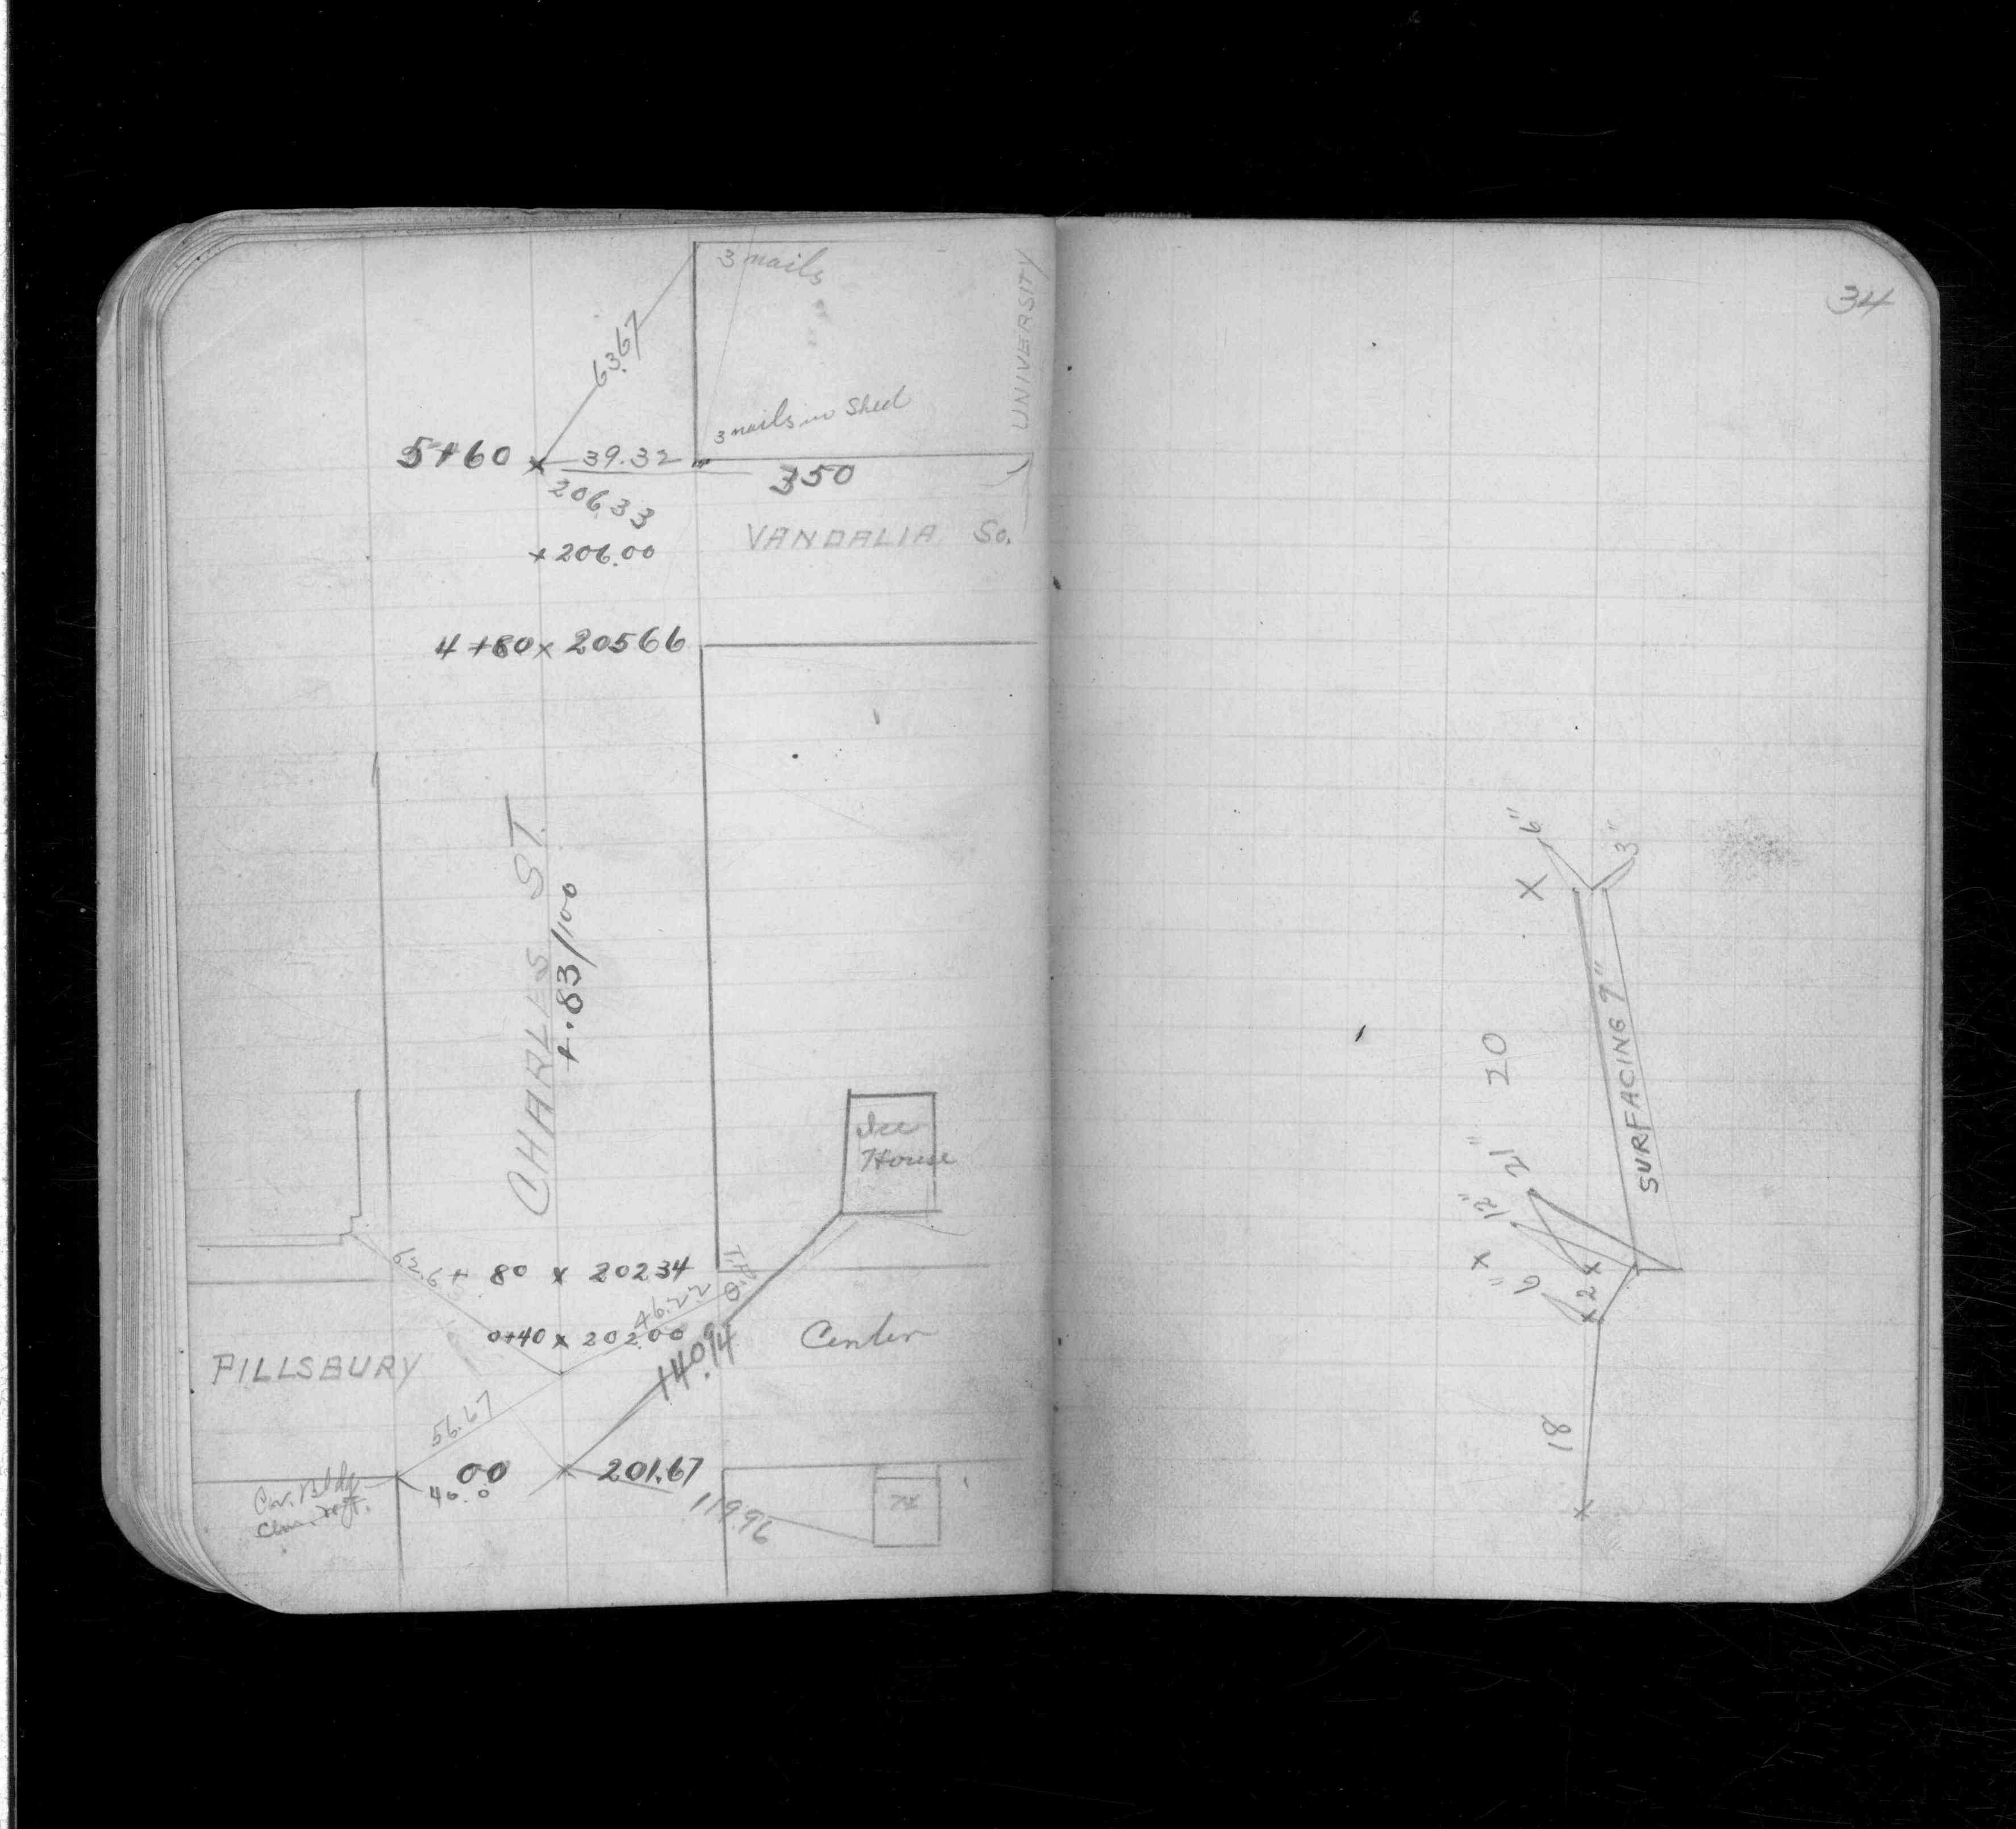 3 nails
UNIVERSITY
63.67
3 nails in Shed
5+60 x 39.32
350
206.33
+ 206.00
VANDALIA So.
4+80 x 205 66
CHARLES ST.
+.83/100
Ice
House
62.6
+ 80 x 202 34
T.P.
46.22
0+40 x 202.00
Center
PILLSBURY
140.94
56.67
00 x 201.67
40.0
Cor. Bldg
119.96
34
6"
3"
X
SURFACING 9"
20
21"
12"
x
6"
2 x
18
x